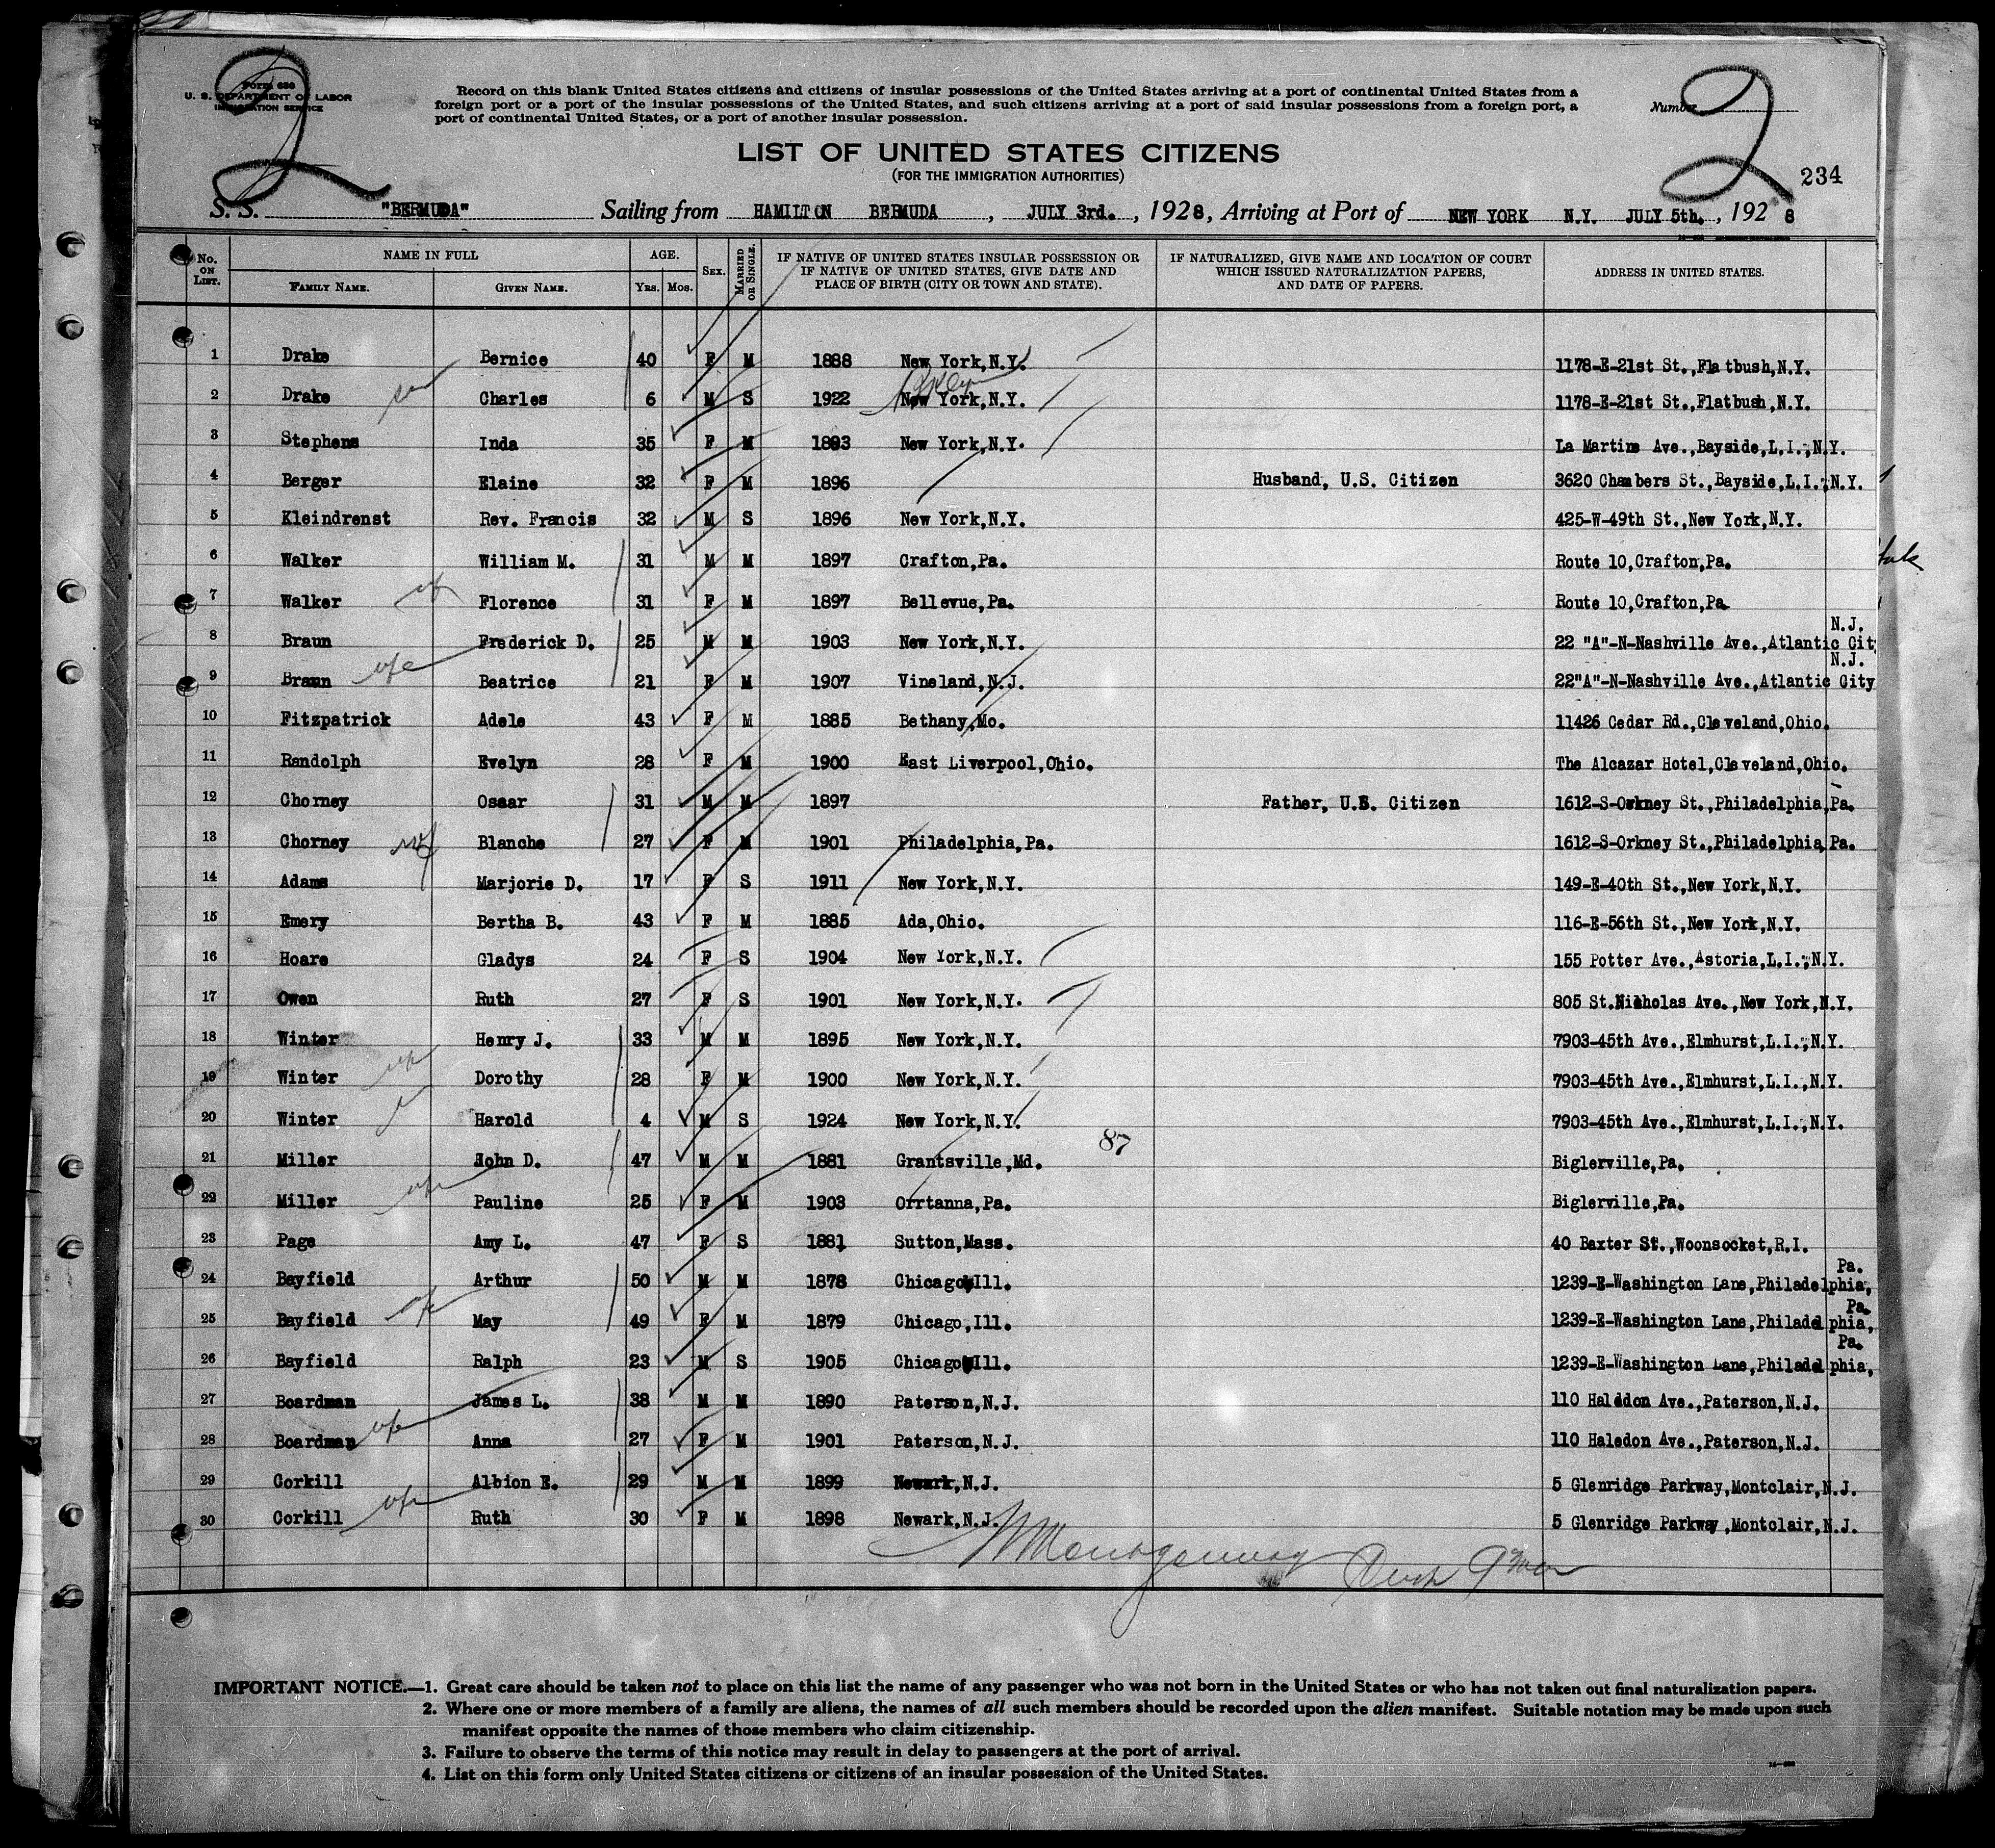 2
2
FORM 630
U. S. DEPARTMENT OF LABOR
IMMIGRATION SERVICE
Record on this blank United States citizens and citizens of insular possessions of the United States arriving at a port of continental United States from a
foreign port or a port of the insular possessions of the United States, and such citizens arriving at a port of said insular possessions from a foreign port, a
port of continental United States, or a port of another insular possession.
Number
LIST OF UNITED STATES CITIZENS
(FOR THE IMMIGRATION AUTHORITIES)
234
S. S. "BERMUDA" Sailing from HAMILTON BERMUDA, JULY 3rd., 1928, Arriving at Port of NEW YORK N.Y. JULY 5th., 1928
No. ON LIST. NAME IN FULL FAMILY NAME. GIVEN NAME. AGE. YRS. MOS. SEX. MARRIED OR SINGLE. IF NATIVE OF UNITED STATES INSULAR POSSESSION OR IF NATIVE OF UNITED STATES, GIVE DATE AND PLACE OF BIRTH (CITY OR TOWN AND STATE). IF NATURALIZED, GIVE NAME AND LOCATION OF COURT WHICH ISSUED NATURALIZATION PAPERS, AND DATE OF PAPERS. ADDRESS IN UNITED STATES.
1 Drake Bernice 40 F M 1888 New York,N.Y. 1178-E-21st St.,Flatbush,N.Y.
2 Drake son Charles 6 M S 1922 New York,N.Y. Bklyn 1178-E-21st St.,Flatbush,N.Y.
3 Stephens Inda 35 F M 1893 New York,N.Y. La Martine Ave.,Bayside,L.I.,N.Y.
4 Berger Elaine 32 F M 1896 Husband, U.S. Citizen 3620 Chambers St.,Bayside,L.I.,N.Y.
5 Kleindrenst Rev. Francis 32 M S 1896 New York,N.Y. 425-W-49th St.,New York,N.Y.
6 Walker William M. 31 M M 1897 Crafton,Pa. Route 10,Crafton,Pa.
7 Walker wf Florence 31 F M 1897 Bellevue,Pa. Route 10,Crafton,Pa
8 Braun Frederick D. 25 M M 1903 New York,N.Y. 22 "A"-N-Nashville Ave.,Atlantic Cit N.J.
9 Braun wfe Beatrice 21 F M 1907 Vineland,N.J. 22"A"-N-Nashville Ave.,Atlantic City N.J.
10 Fitzpatrick Adele 43 F M 1885 Bethany,Mo. 11426 Cedar Rd.,Cleveland,Ohio.
11 Randolph Evelyn 28 F M 1900 East Liverpool,Ohio. The Alcazar Hotel,Cleveland,Ohio.
12 Chorney Oscar 31 M M 1897 Father, U.S. Citizen 1612-S-Orkney St.,Philadelphia,Pa.
13 Chorney wf Blanche 27 F M 1901 Philadelphia,Pa. 1612-S-Orkney St.,Philadelphia,Pa.
14 Adams Marjorie D. 17 F S 1911 New York,N.Y. 149-E-40th St.,New York,N.Y.
15 Emery Bertha B. 43 F M 1885 Ada,Ohio. 116-E-56th St.,New York,N.Y.
16 Hoare Gladys 24 F S 1904 New York,N.Y. 155 Potter Ave.,Astoria,L.I.,N.Y.
17 Owen Ruth 27 F S 1901 New York,N.Y. 805 St.Nicholas Ave.,New York,N.Y.
18 Winter Henry J. 33 M M 1895 New York,N.Y. 7903-45th Ave.,Elmhurst,L.I.,N.Y.
19 Winter wfe Dorothy 28 F M 1900 New York,N.Y. 7903-45th Ave.,Elmhurst,L.I.,N.Y.
20 Winter Harold 4 M S 1924 New York,N.Y. 7903-45th Ave.,Elmhurst,L.I.,N.Y.
21 Miller John D. 47 M M 1881 Grantsville,Md. 87 Biglerville,Pa.
22 Miller wfe Pauline 25 F M 1903 Orrtanna,Pa. Biglerville,Pa.
23 Page Amy L. 47 F S 1881 Sutton,Mass. 40 Baxter St.,Woonsocket,R.I.
24 Bayfield Arthur 50 M M 1878 Chicago,Ill. 1239-E-Washington Lane,Philadelphia, Pa.
25 Bayfield wfe May 49 F M 1879 Chicago,Ill. 1239-E-Washington Lane,Philadelphia, Pa.
26 Bayfield Ralph 23 M S 1905 Chicago,Ill. 1239-E-Washington Lane,Philadelphia, Pa.
27 Boardman James L. 38 M M 1890 Paterson,N.J. 110 Haledon Ave.,Paterson,N.J.
28 Boardman wfe Anna 27 F M 1901 Paterson,N.J. 110 Haledon Ave.,Paterson,N.J.
29 Corkill Albion E. 29 M M 1899 Newark,N.J. 5 Glenridge Parkway,Montclair,N.J.
30 Corkill wfe Ruth 30 F M 1898 Newark,N.J. 5 Glenridge Parkway,Montclair,N.J.
Montgomery
IMPORTANT NOTICE.—1. Great care should be taken not to place on this list the name of any passenger who was not born in the United States or who has not taken out final naturalization papers.
2. Where one or more members of a family are aliens, the names of all such members should be recorded upon the alien manifest. Suitable notation may be made upon such
manifest opposite the names of those members who claim citizenship.
3. Failure to observe the terms of this notice may result in delay to passengers at the port of arrival.
4. List on this form only United States citizens or citizens of an insular possession of the United States.